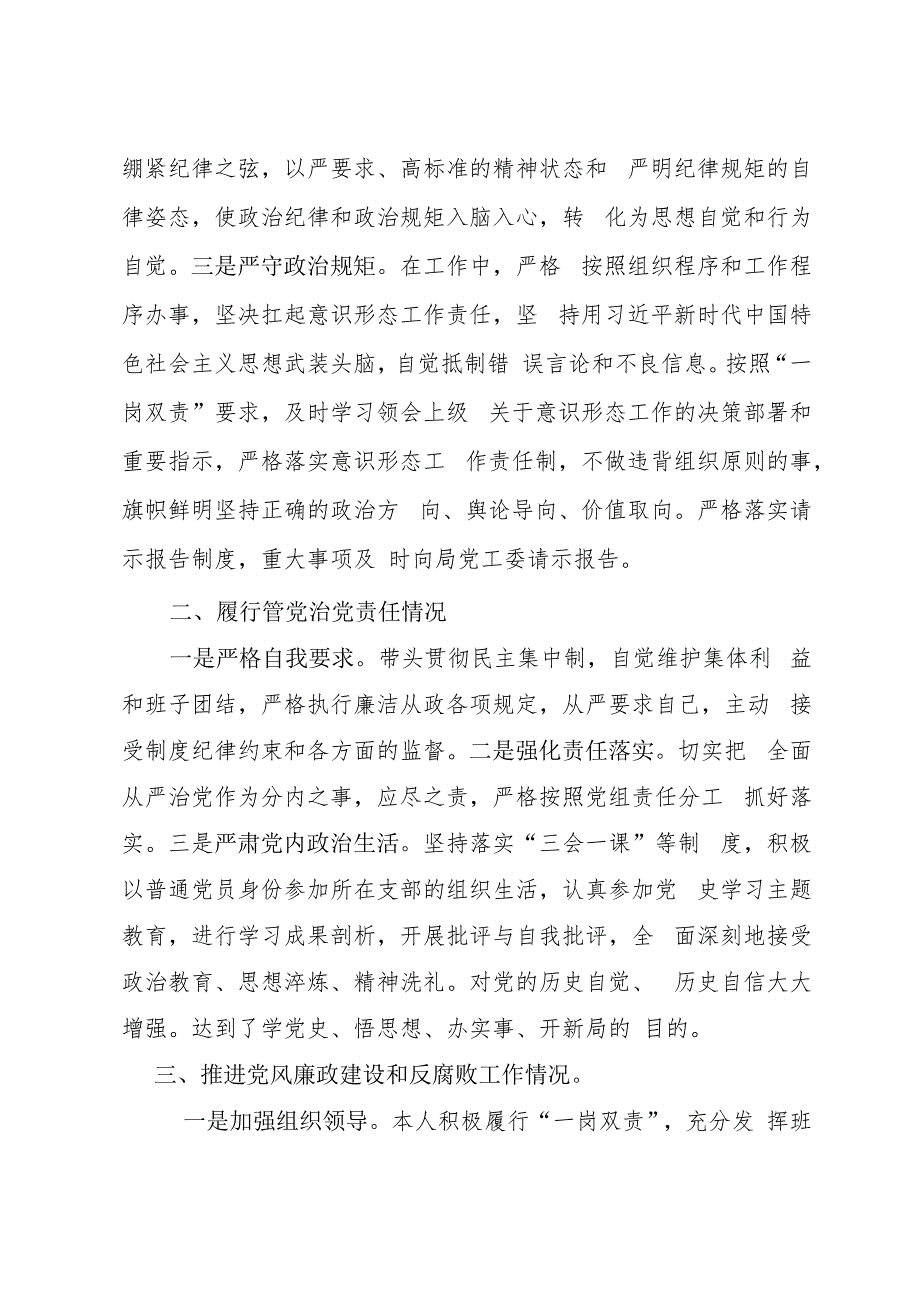 绷紧纪律之弦，以严要求、高标准的精神状态和 严明纪律规矩的自
律姿态，使政治纪律和政治规矩入脑入心，转 化为思想自觉和行为
自觉。三是严守政治规矩。在工作中，严格 按照组织程序和工作程
序办事，坚决扛起意识形态工作责任，坚 持用习近平新时代中国特
色社会主义思想武装头脑，自觉抵制错 误言论和不良信息。按照“一
岗双责”要求，及时学习领会上级 关于意识形态工作的决策部署和
重要指示，严格落实意识形态工 作责任制，不做违背组织原则的事，
旗帜鲜明坚持正确的政治方 向、舆论导向、价值取向。严格落实请
示报告制度，重大事项及 时向局党工委请示报告。
二、履行管党治党责任情况
一是严格自我要求。带头贯彻民主集中制，自觉维护集体利 益
和班子团结，严格执行廉洁从政各项规定，从严要求自己，主动 接
受制度纪律约束和各方面的监督。二是强化责任落实。切实把 全面
从严治党作为分内之事，应尽之责，严格按照党组责任分工 抓好落
实。三是严肃党内政治生活。坚持落实“三会一课”等制 度，积极
以普通党员身份参加所在支部的组织生活，认真参加党 史学习主题
教育，进行学习成果剖析，开展批评与自我批评，全 面深刻地接受
政治教育、思想淬炼、精神洗礼。对党的历史自觉、 历史自信大大
增强。达到了学党史、悟思想、办实事、开新局的 目的。
三、推进党风廉政建设和反腐败工作情况。
一是加强组织领导。本人积极履行“一岗双责”，充分发 挥班